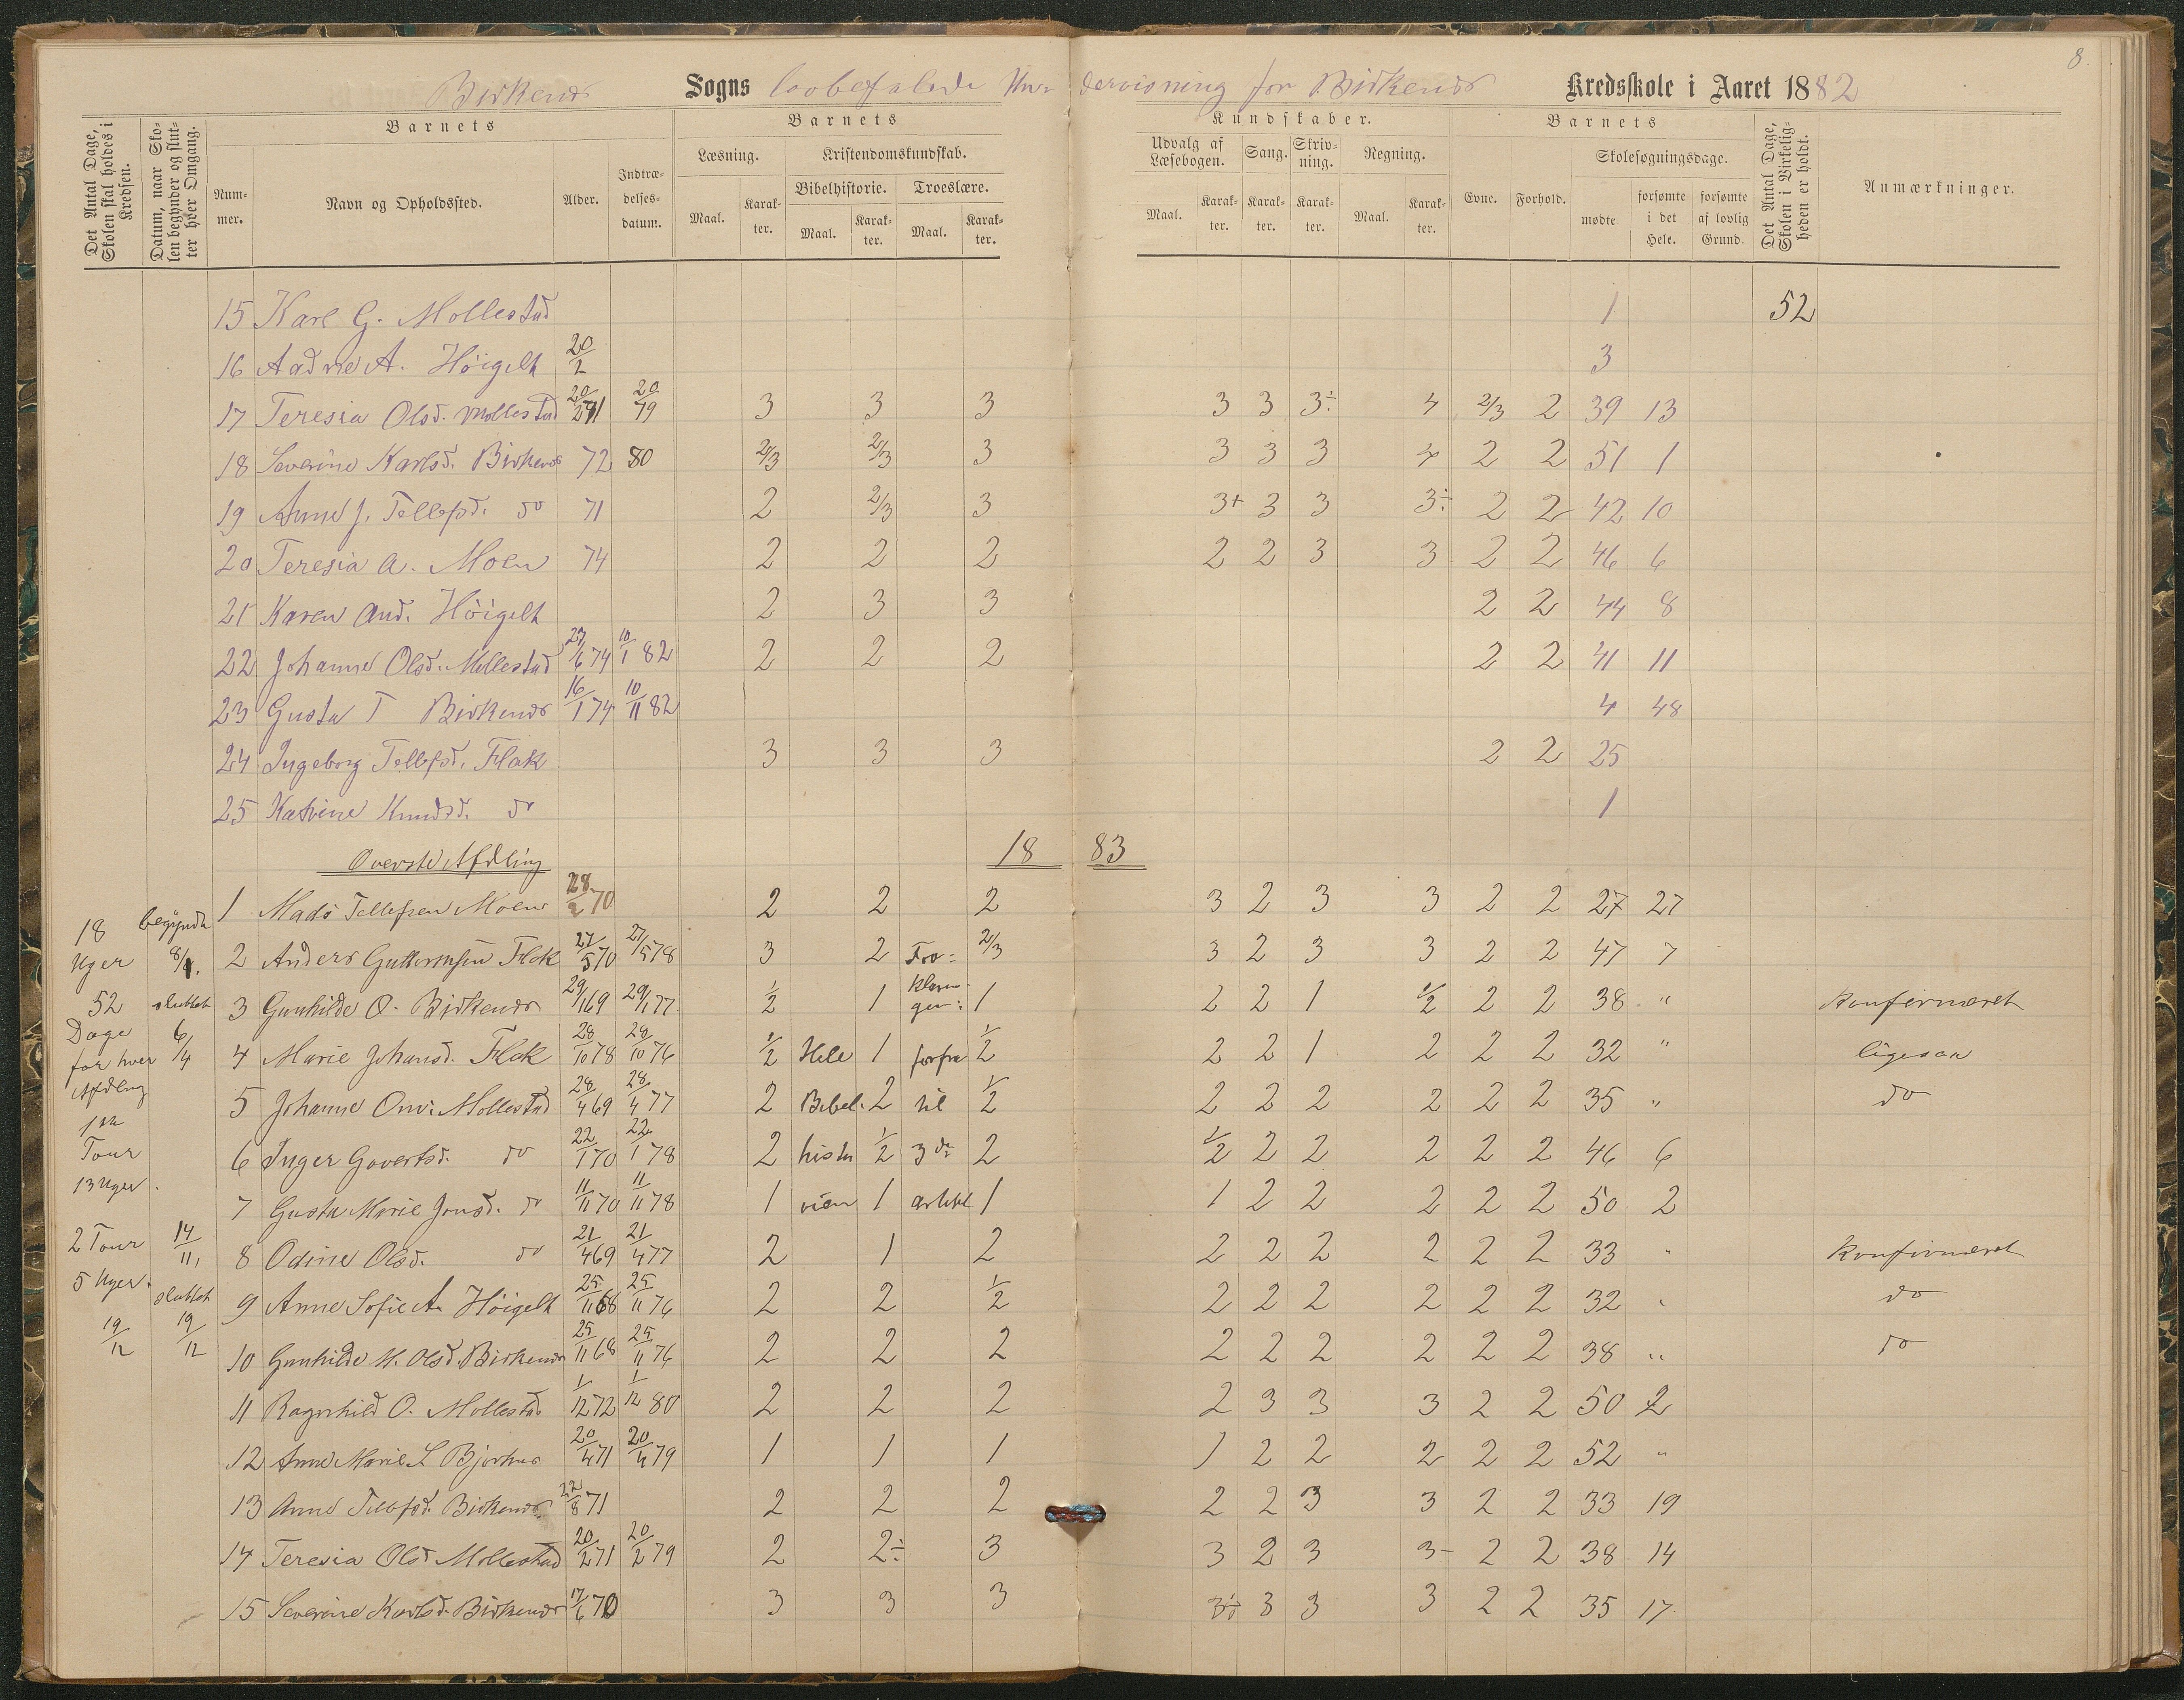 8.
Birkenes Sogns lovbefalede Undervisning for Birkenes Kredsskole i Aaret 1882
Det Antal Dage, Skolen skal holdes i Kredsen.
Datum, naar Skolen begynder og slutter hver Omgang.
Barnets
Nummer.
Navn og Opholdssted.
Alder.
Indtrædelsesdatum.
Barnets
Læsning.
Maal.
Karakter.
Kristendomskundskab.
Bibelhistorie.
Maal.
Karakter.
Troeslære.
Maal.
Karakter.
Kundskaber.
Udvalg af Læsebogen.
Maal.
Karakter.
Sang.
Karakter.
Skrivning.
Karakter.
Regning.
Maal.
Karakter.
Barnets
Evne.
Forhold.
Skolesøgningsdage.
mødte
forsømte i det Hele.
forsømte af lovlig Grund.
Det Antal Dage, Skolen i Virkeligheden er holdt.
Anmærkninger.
15 Karl G. Mollestad 1 52
16 Aadne A. Høigelt 20/2 3
17 Teresia Olsd. Mollestad 20/2 71 20/79 3 3 3 3 3 3÷ 4 2/3 2 39 13
18 Severine Karlsd. Birkenes 72 80 2/3 2/3 3 3 3 3 4 2 2 51 1
19 Anne J. Tellefsd. do 71 2 2/3 3 3+ 3 3 3÷ 2 2 42 10
20 Teresia A. Moen 74 2 2 2 2 2 3 3 2 2 46 6
21 Karen And. Høigelt 2 3 3 2 2 44 8
22 Johanne Olsd. Mollestad 27/6 74 10/1 82 2 2 2 2 2 41 11
23 Gusta T Birkenes 16/1 74 10/11 82 4 48
24 Ingeborg Tellefsd. Flak 3 3 3 2 2 25
25 Katrine Knudsd. do 1
Overste Afdling 18 83
1 Mads Tellefsen Moen 28/2 70 2 2 2 3 2 3 3 2 2 27 27
18 Uger begyndt 8/1.
2 Anders Guttormsen Flak 27/5 70 27/5 78 3 2 For= 2/3 3 2 3 3 2 2 47 7
52 sluttet
3 Gunhilde O. Birkenes 29/1 69 29/1 77. 1/2 1 klarin-gen: 1 2 2 1 1/2 2 2 38 " konfirmeret
Dage 6/4
for hver
4 Marie Johansd. Flak 28/10 78 28/10 76 1/2 Hele 1 forfra 1/2 2 2 1 2 2 2 32 " ligesaa
Afdling
5 Johanne Omd. Mollestad 28/4 69 28/4 77 2 Bibel. 2 til 1/2 2 2 2 2 2 2 35 " do
1ste
Tour
6 Inger Govertsd. do 22/1 70 22/1 78 2 histo 1/2 3de 2 1/2 2 2 2 2 2 46 6
13 Uger.
7 Gusta Marie Jonsd. do 11/11 70 11/11 78 1 rien 1 artikel 1 1 2 2 2 2 2 50 2
2 Tour 14/11,
8 Odine Olsd. do 21/4 69 21/4 77 2 1 2 2 2 2 2 2 2 33 " Konfirmeret
5 Uger. sluttet
9 Anne Sofie A. Høigelt 25/11 68 25/11 76 2 2 1/2 2 2 2 2 2 2 32 " do
19/12 19/12
10 Gunhilde M. Olsd. Birkenes 25/11 68 25/11 76 2 2 2 2 2 2 2 2 2 38 " do
11 Ragnhild O. Mollestad 1/12 72 1/12 80 2 2 2 2 3 3 3 2 2 50 2
12 Anne Marie L Bjorhus 20/4 71 20/4 79 1 1 1 1 2 2 2 2 2 52 "
13 Anne Tellefsd. Birkenes 22/8 71 2 2 2 2 2 3 3 2 2 33 19
14 Teresia Olsd Mollestad 20/2 71 20/2 79 2 2÷ 3 3 2 3 3- 2 2 38 14
15 Severine Karlsd. Birkenes 17/6 70 3 3 3 3÷ 3 3 3 2 2 35 17